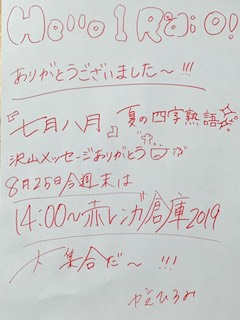 Hello! Radio!
ありがとうございました〜!!!
『七月八月』夏の四字熟語
沢山メッセージありがとう
8月25日今週末は
14:00〜赤レンガ倉庫2019
大集合だ〜!!!
やえひろみ